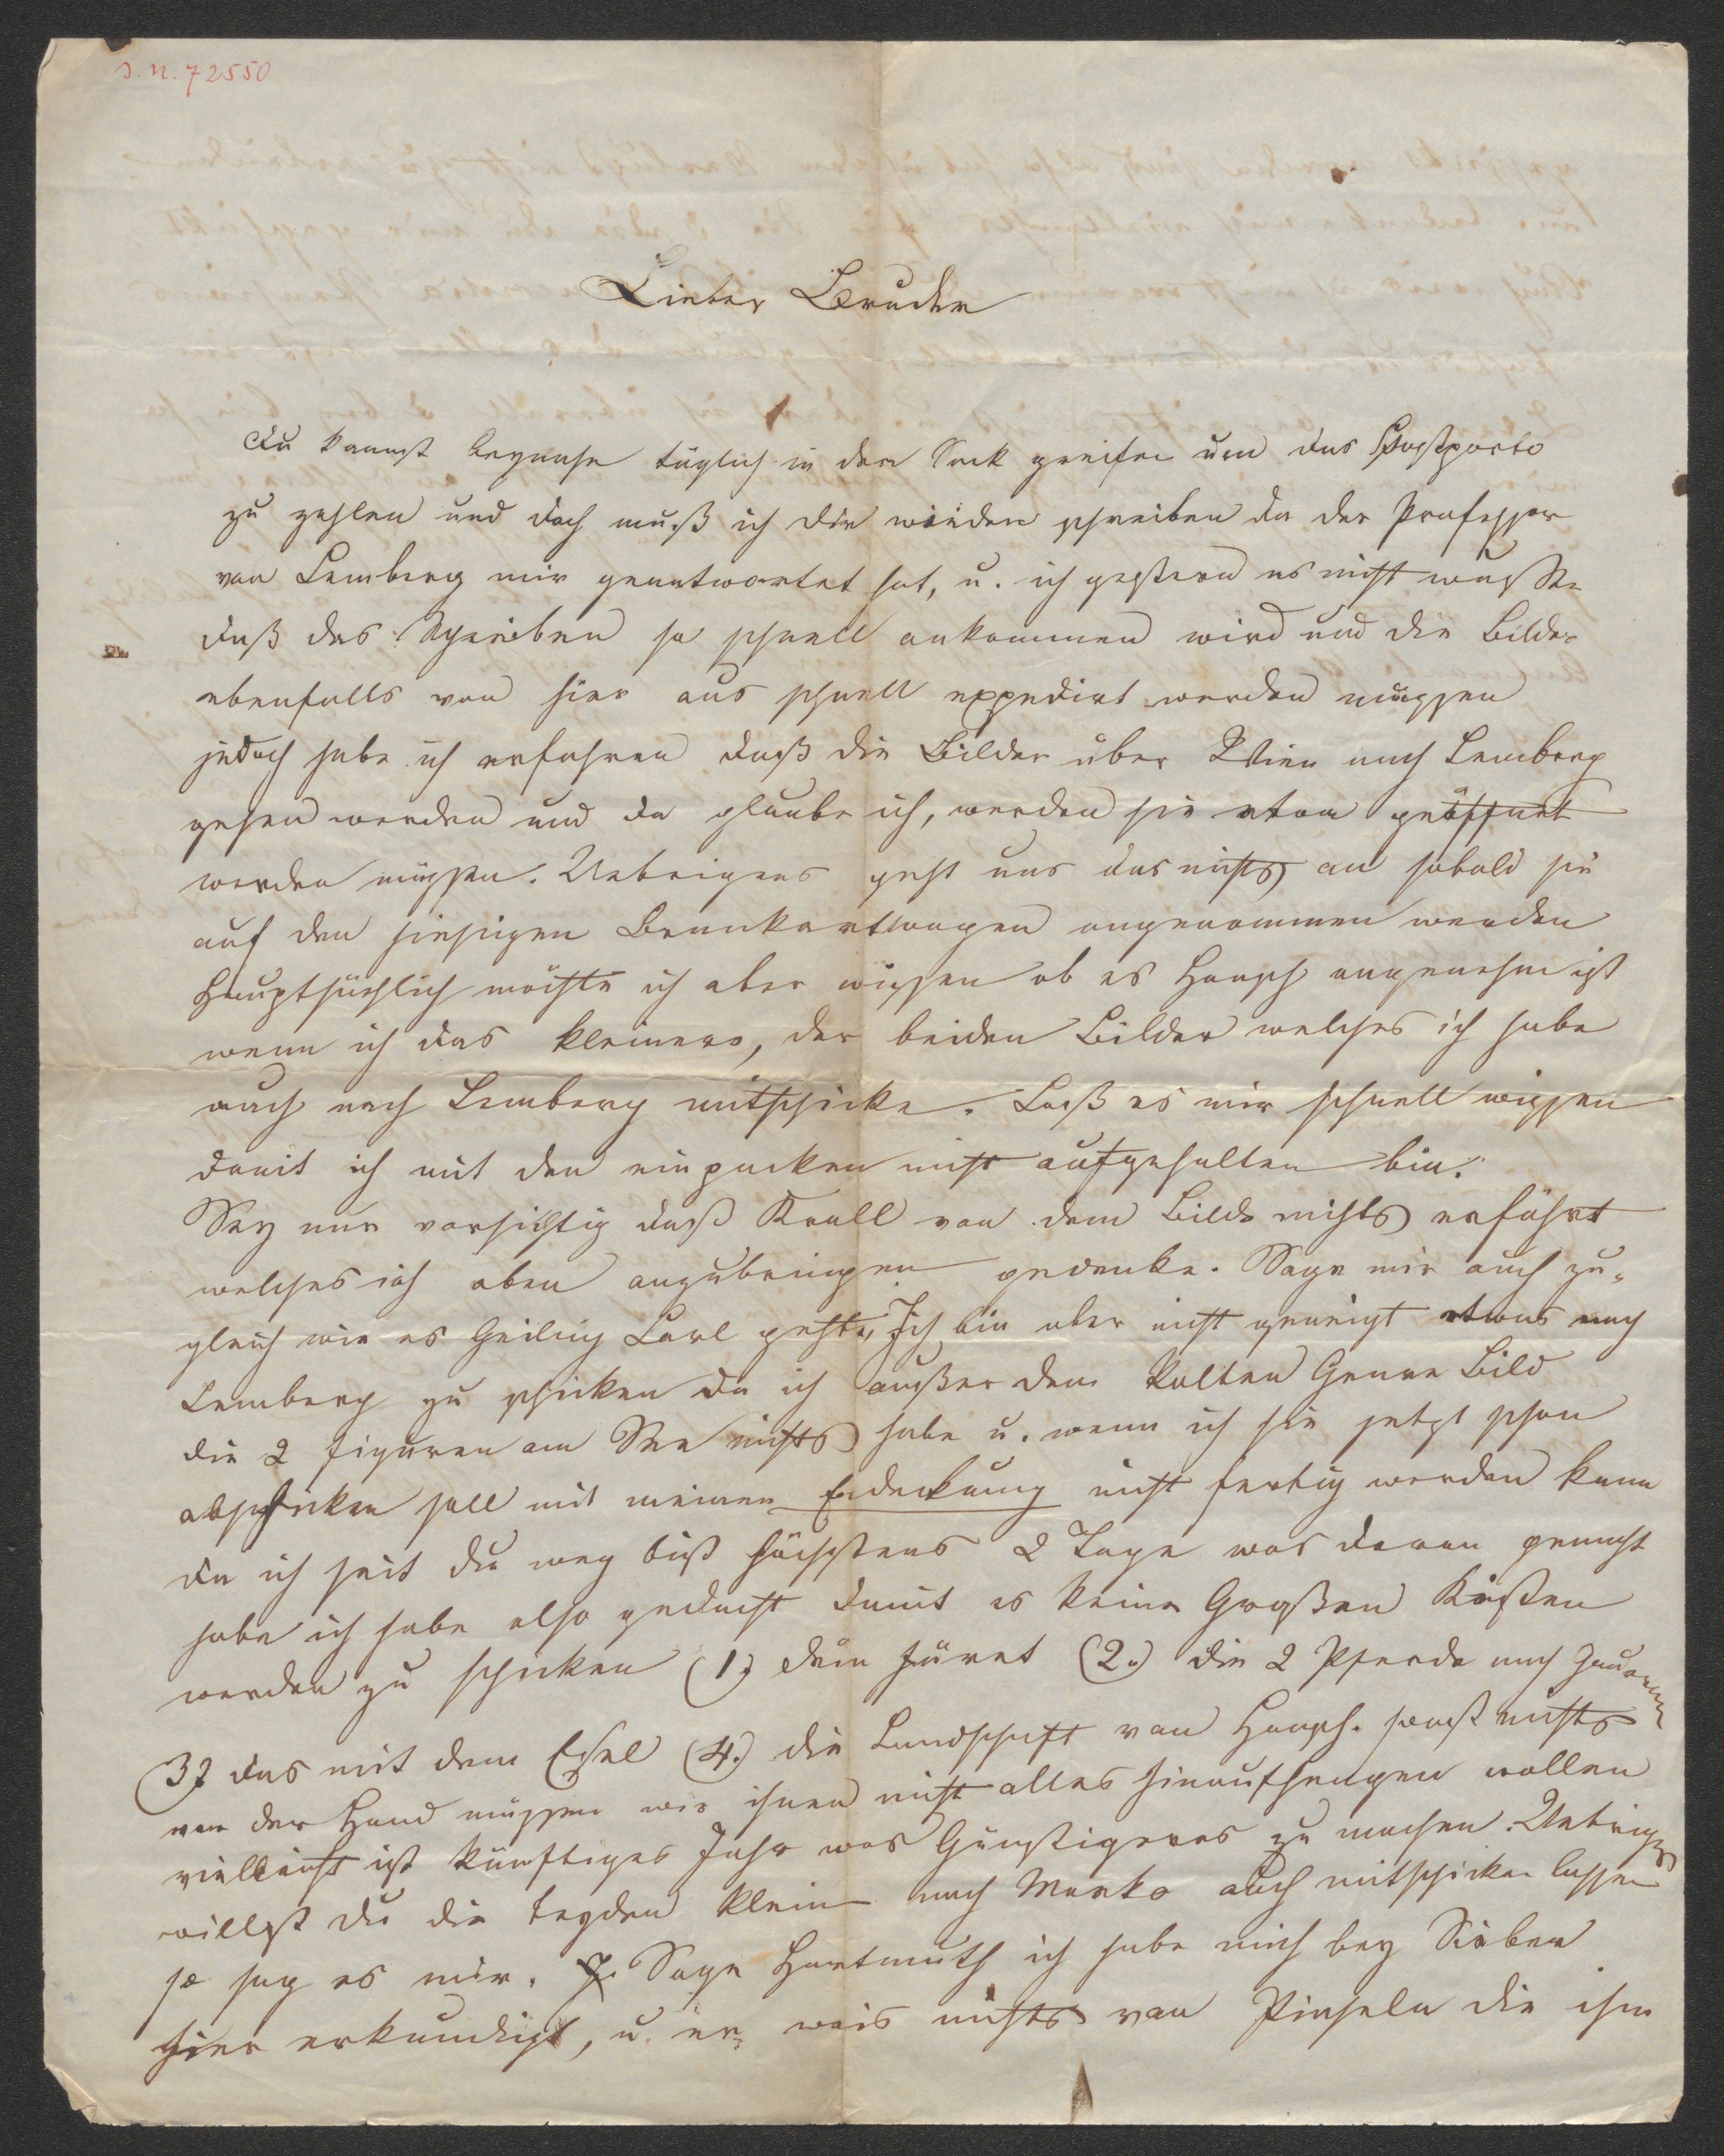 I.N. 72550
Lieber Bruder
Du kannst beynahe täglich in den Sack greifen um das Postporto
zu zahlen und doch muß ich dir wieder schreiben da der Professor
von Lemberg mir geantwortet hat, u. ich gestern es nicht wußte
daß das Schreiben so schnell ankommen wird und die Bilder
ebenfalls von hier aus schnell expedirt werden müssen
jedoch habe ich erfahren daß die Bilder über Wien nach Lemberg
gehen werden und da glaube ich, werden sie etwa geöffnet
werden müssen. Uebrigens geht uns das nichts an sobald sie
auf den hiesigen Brankartwagen angenommen werden
Hauptsächlich möchte ich aber wissen ob es Haush angenehm ist
wenn ich das kleinere, der beiden Bilder welches ich habe
auch nach Lemberg mitschicke. Laß es mir schnell wissen
damit ich mit den einpacken nicht aufgehalten bin.
Sey nur vorsichtig daß Krall von dem Bilde nichts erfährt
welches ich oben anzubringen gedenke. Sage mir auch zu-
gleich wie es Geiling Carl geht, Ich bin aber nicht geneigt etwas nach
Lemberg zu schicken da ich außer dem kalten Genre Bild
die 2 Figuren am See nichts habe u. wenn ich sie jetzt schon
abschicken soll mit meiner Endeckung nicht fertig werden kann
da ich seit du weg bist höchstens 2 Tage was daran gemacht
habe ich habe also gedacht damit es keine Großen Kisten
werden zu schicken (1) dein (2.) die 2 Pferde nach Gauermann
(3) das mit dem Esel (4.) die Landschaft von Haush. sonst nichts
von der Hand müssen wir ihnen nicht alles hinaufhengen wollen
vielleicht ist künftiges Jahr was Günstigeres zu machen. Uebrigens
willst du die klein nach Marko auch mitschicken lassen
so sag es mir. Sage Hartmuth ich habe mich bey Sieber
hier erkundigt, u. er weis nichts von Pinseln die ihm